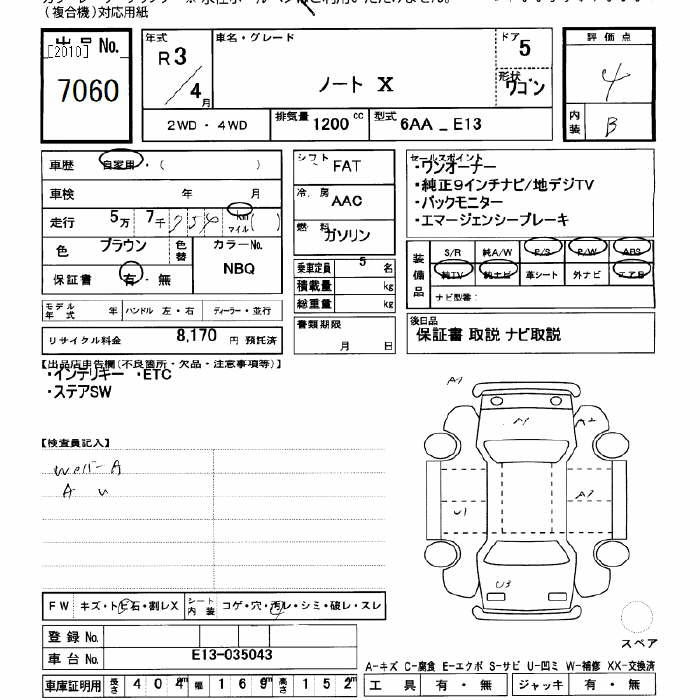 (複合機)対応用紙
出品 No.
[2010]
7060
年式 R 3 / 4 月
車名・グレード
ノート X
ドア 5
形状 ワゴン
評価点 4
内装 B
2WD・4WD
排気量 1200 cc
型式 6AA _ E13
車歴 自家用・( )
車検 年 月
走行 5万 7千 Km マイル ( )
色 ブラウン 色替 カラーNo. NBQ
保証書 有・無
モデル年式 年 ハンドル 左・右 ディーラー・並行
リサイクル料金 8,170 円 預託済
シフト FAT
冷房 AAC
燃料 ガソリン
乗車定員 5 名
積載量 kg
総重量 kg
書類期限 月 日
セールスポイント
・ワンオーナー
・純正9インチナビ/地デジTV
・バックモニター
・エマージェンシーブレーキ
装備品 S/R 純A/W P/S P/W ABS
純TV 純ナビ 革シート 外ナビ エアB
ナビ型番:
後日品
保証書 取説 ナビ取説
【出品店申告欄(不良箇所・欠品・注意事項等)】
・インテリキー ・ETC
・ステアSW
【検査員記入】
A U
A1
A2
U1
U3
FW キズ・トビ石・割レX シート内装 コゲ・穴・汚レ・シミ・破レ・スレ
登録 No.
車台 No. E13-035043
車庫証明用 長さ 404 幅 169 高さ 152
スペア
A-キズ C-腐食 E-エクボ S-サビ U-凹ミ W-補修 XX-交換済
工具 有・無 ジャッキ 有・無